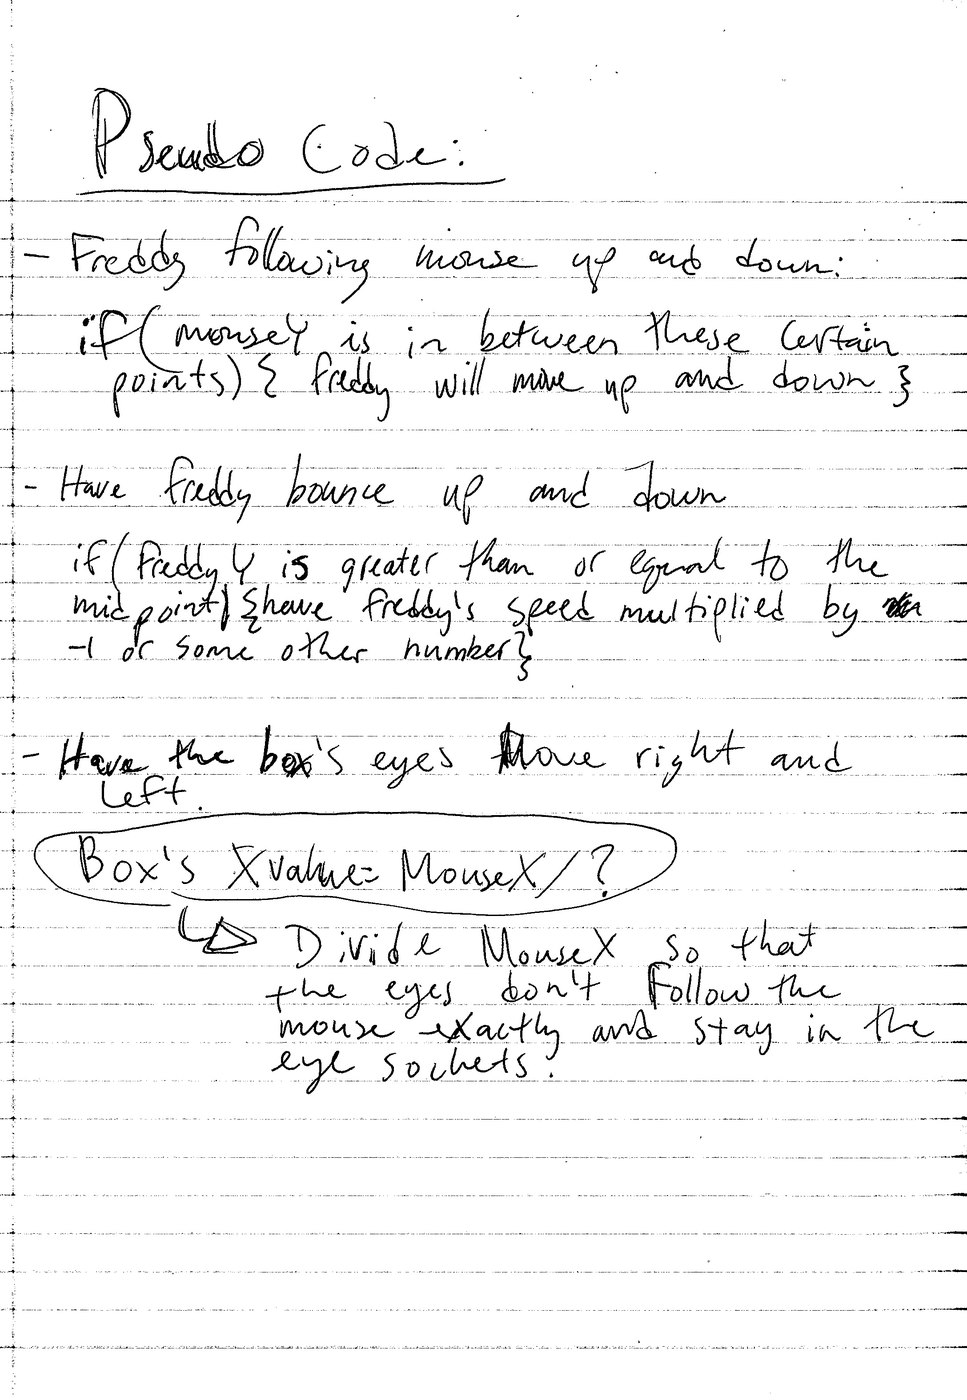 Pseudo Code:
- Freddy following mouse up and down:
if (mouseY is in between these certain
points) { freddy will move up and down }
- Have freddy bounce up and down
if (freddy Y is greater than or equal to the
midpoint) {have freddy's speed multiplied by
-1 or some other number}
- Have the box's eyes Move right and
Left.
Box's Xvalue= MouseX/?
Divide MouseX so that
the eyes don't Follow the
mouse exactly and stay in the
eye sockets.